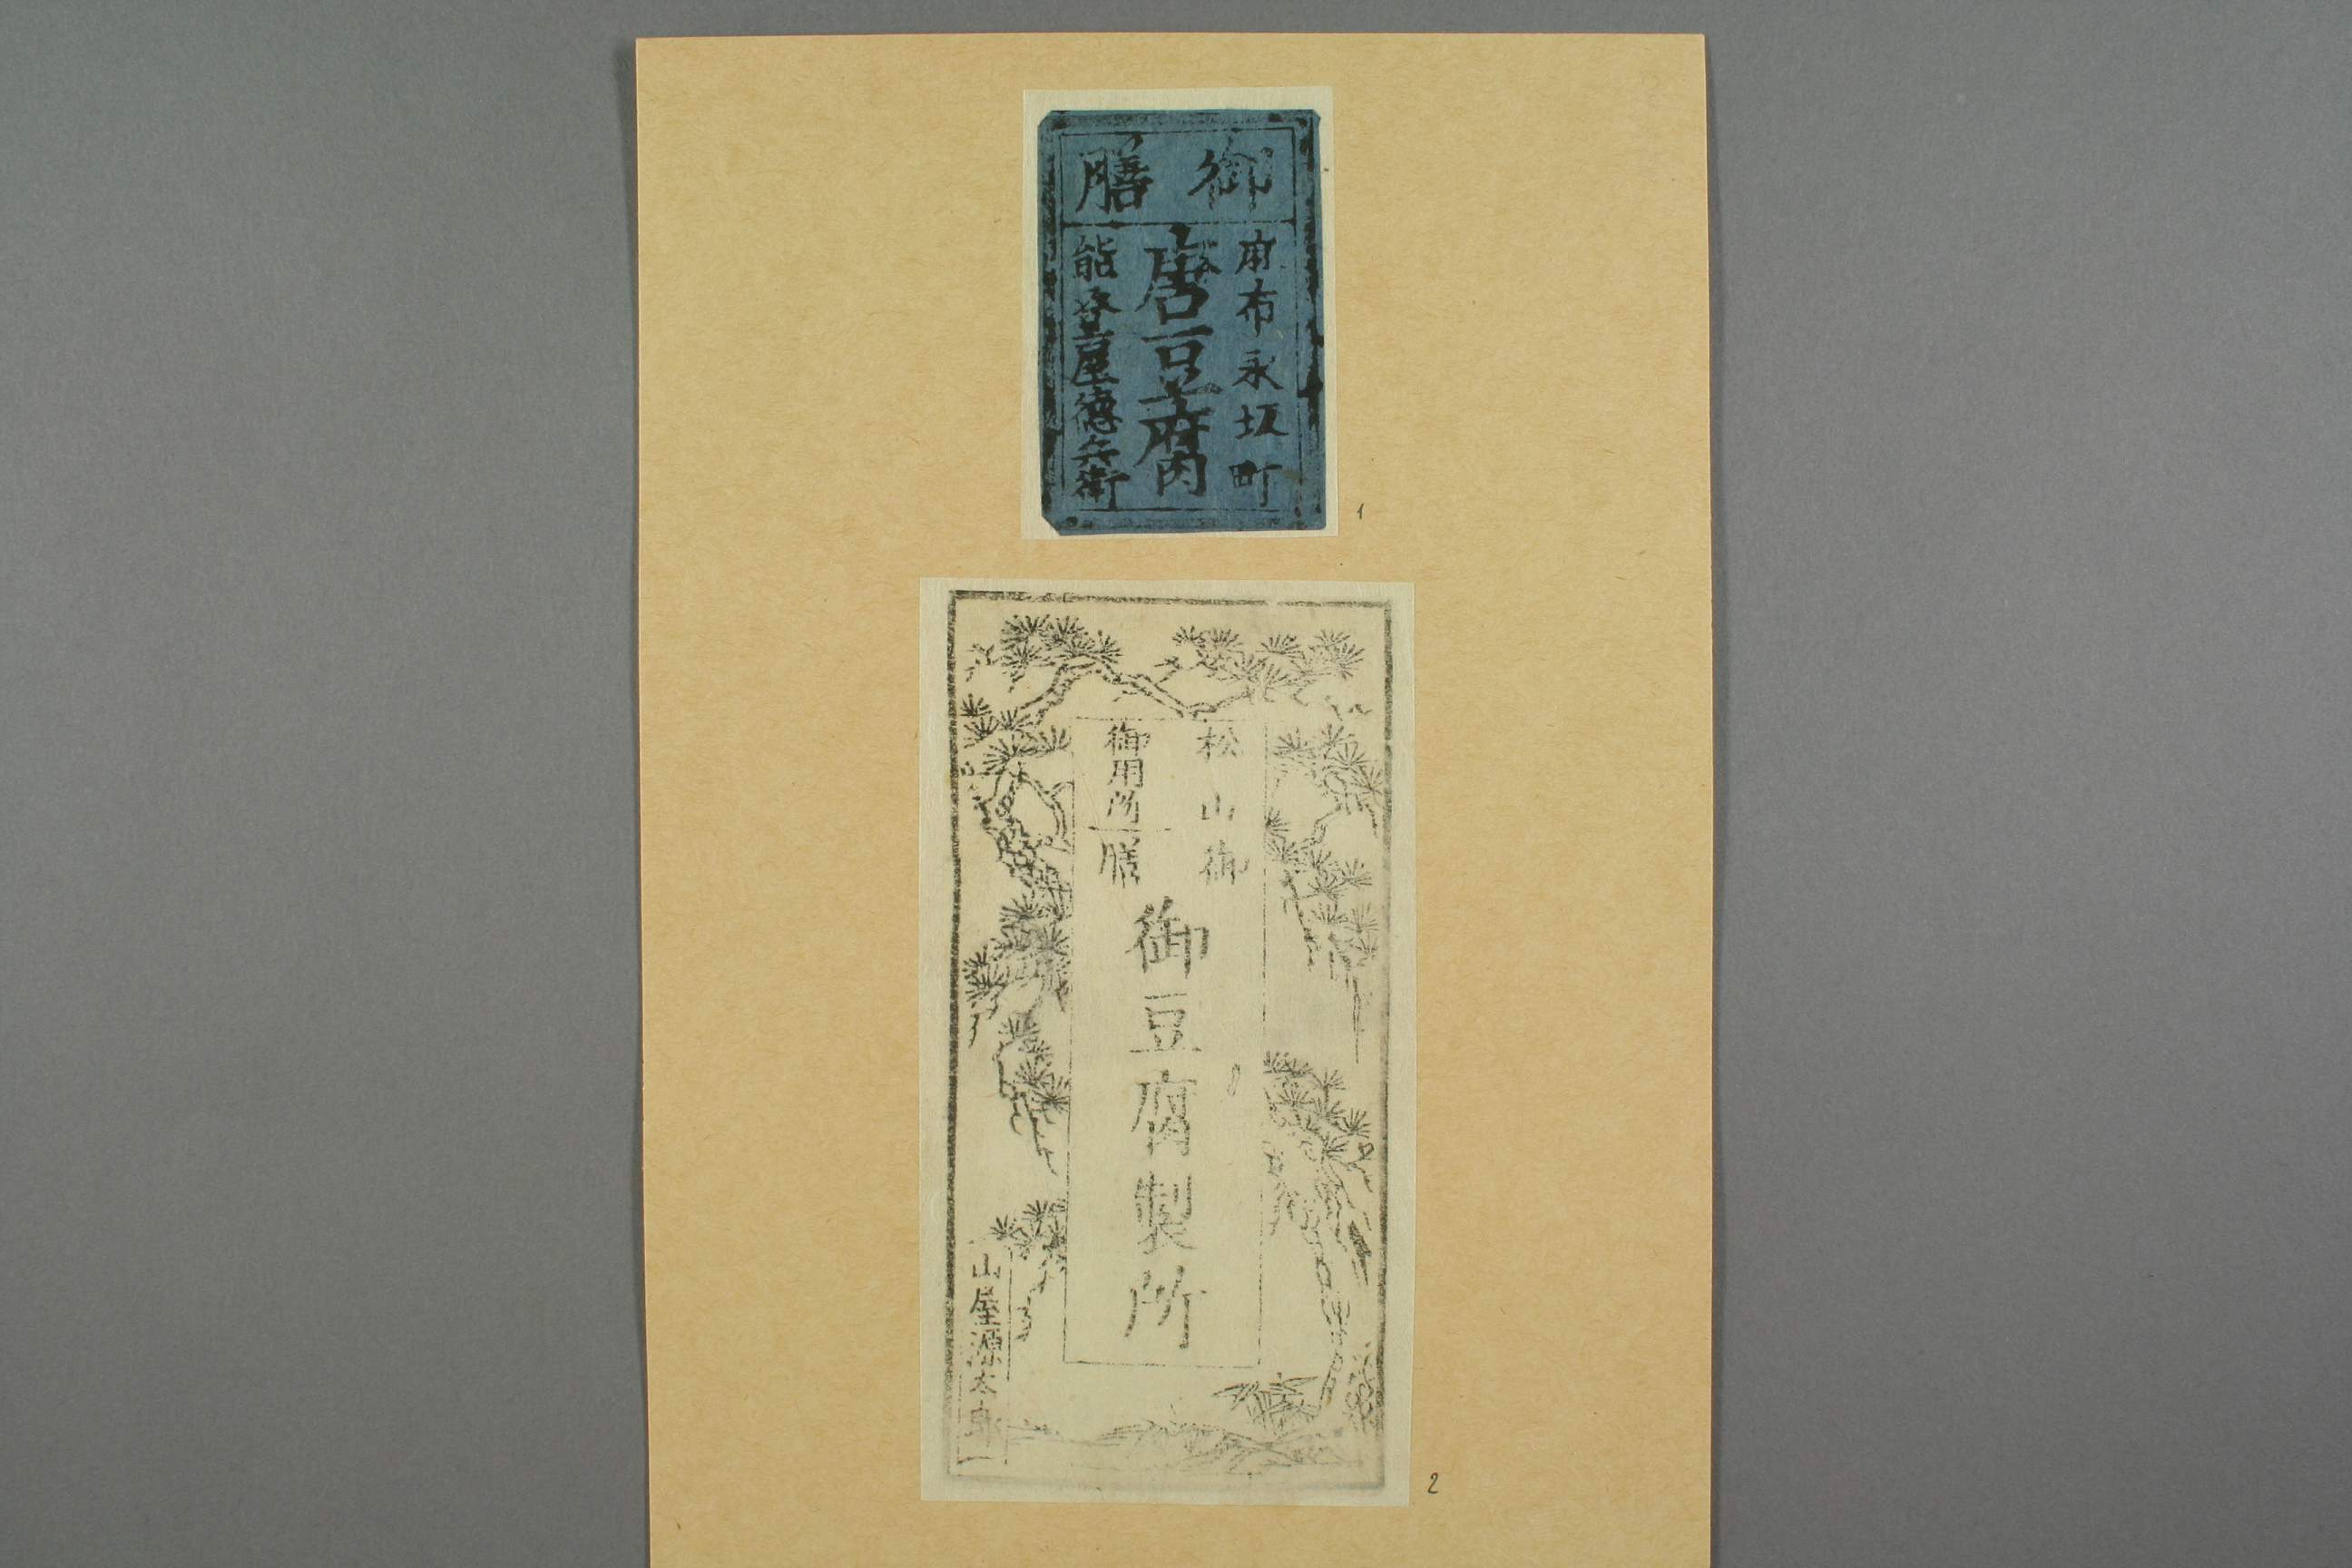 御膳
麻布永坂町
唐豆腐
能登屋徳兵衛
1
松山御
御用所
膳
御豆腐製所
山屋源太郎
2